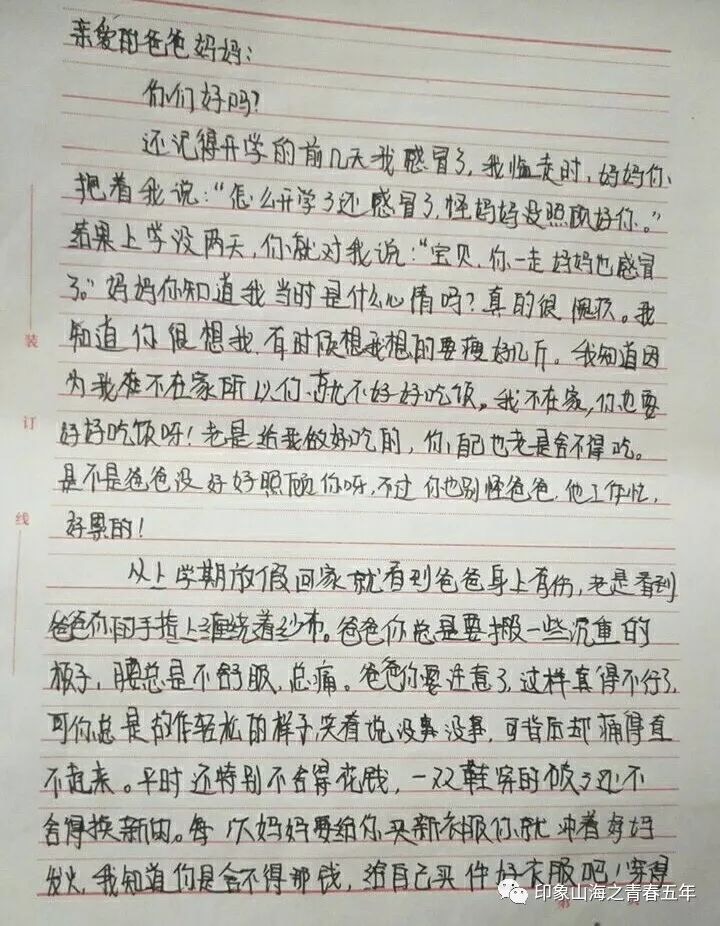 亲爱的爸爸妈妈：
你们好吗？
还记得开学的前几天我感冒了，我临走时，妈妈你
抱着我说：“怎么开学了还感冒了，怪妈妈没照顾好你。”
结果上学没两天，你就对我说：“宝贝，你一走妈妈也感冒
了。”妈妈你知道我当时是什么心情吗？真的很愧疚。我
知道你很想我，有时候想我想的要瘦好几斤。我知道因
为我不在家所以你就不好好吃饭。我不在家，你也要
好好吃饭呀！老是给我做好吃的，你自己也老是舍不得吃。
是不是爸爸没好好照顾你呀，不过你也别怪爸爸，他工作忙，
好累的！
从上学期放假回家就看到爸爸身上有伤，老是看到
爸爸你的手指上缠绕着纱布。爸爸你总是要搬一些沉重的
板子，腰总是不舒服，总痛。爸爸你要注意了，这样真得不行了，
可你总是故作轻松的样子笑着说没事没事，可背后却痛得直
不起来。平时还特别不舍得花钱，一双鞋穿的破了还不
舍得换新的。每次妈妈要给你买新衣服你就冲着妈妈
发火，我知道你是舍不得那钱，给自己买件好衣服吧！穿得
装
订
线
第
页
印象山海之青春五年